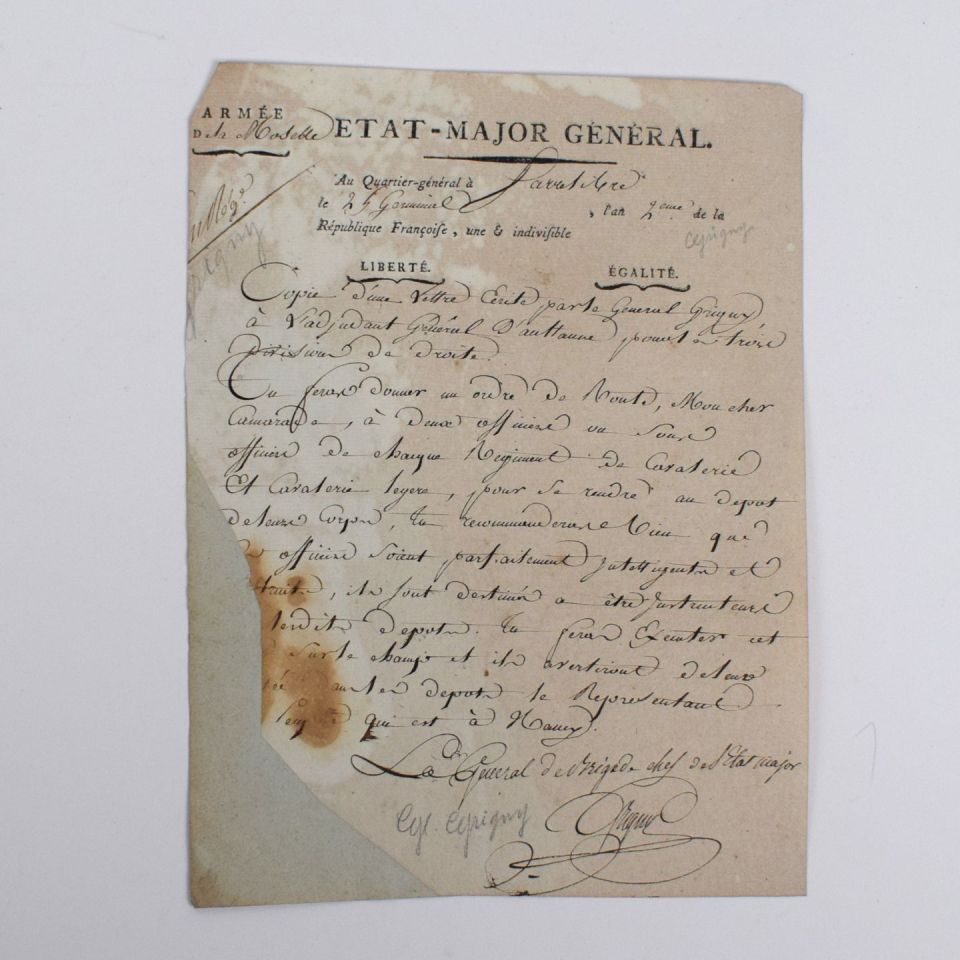 ARMÉE
De la Moselle
ETAT-MAJOR GÉNÉRAL.
Au Quartier-général à Sarrelibre
le 25 Germinal, l'an 2eme de la
République Françoise, une & indivisible
Grigny
LIBERTÉ. ÉGALITÉ.
Copie d'une Lettre Ecrite par le General Grigny
à L'adjudant Général D'aultanne pour les trois
Division de droite.
Tu feras donner un ordre de Route, Mon cher
Camarade, à deux officiers ou Sous
officiers de chaque Regiment de Cavalerie
Et Cavalerie legere, pour se rendre au depot
de leurs Corps, Tu recommanderas bien que
officiers soient parfaitement Intelligents et
, ils sont destinés a être Instructeurs
desdits depots. Tu feras Executer cet
sur le champ et ils avertiront de leur
aux les depots le Representant
qui est à Nancy.
Le Géneral de Brigade chef de l'Etat major
Gl. Grigny
Grigny